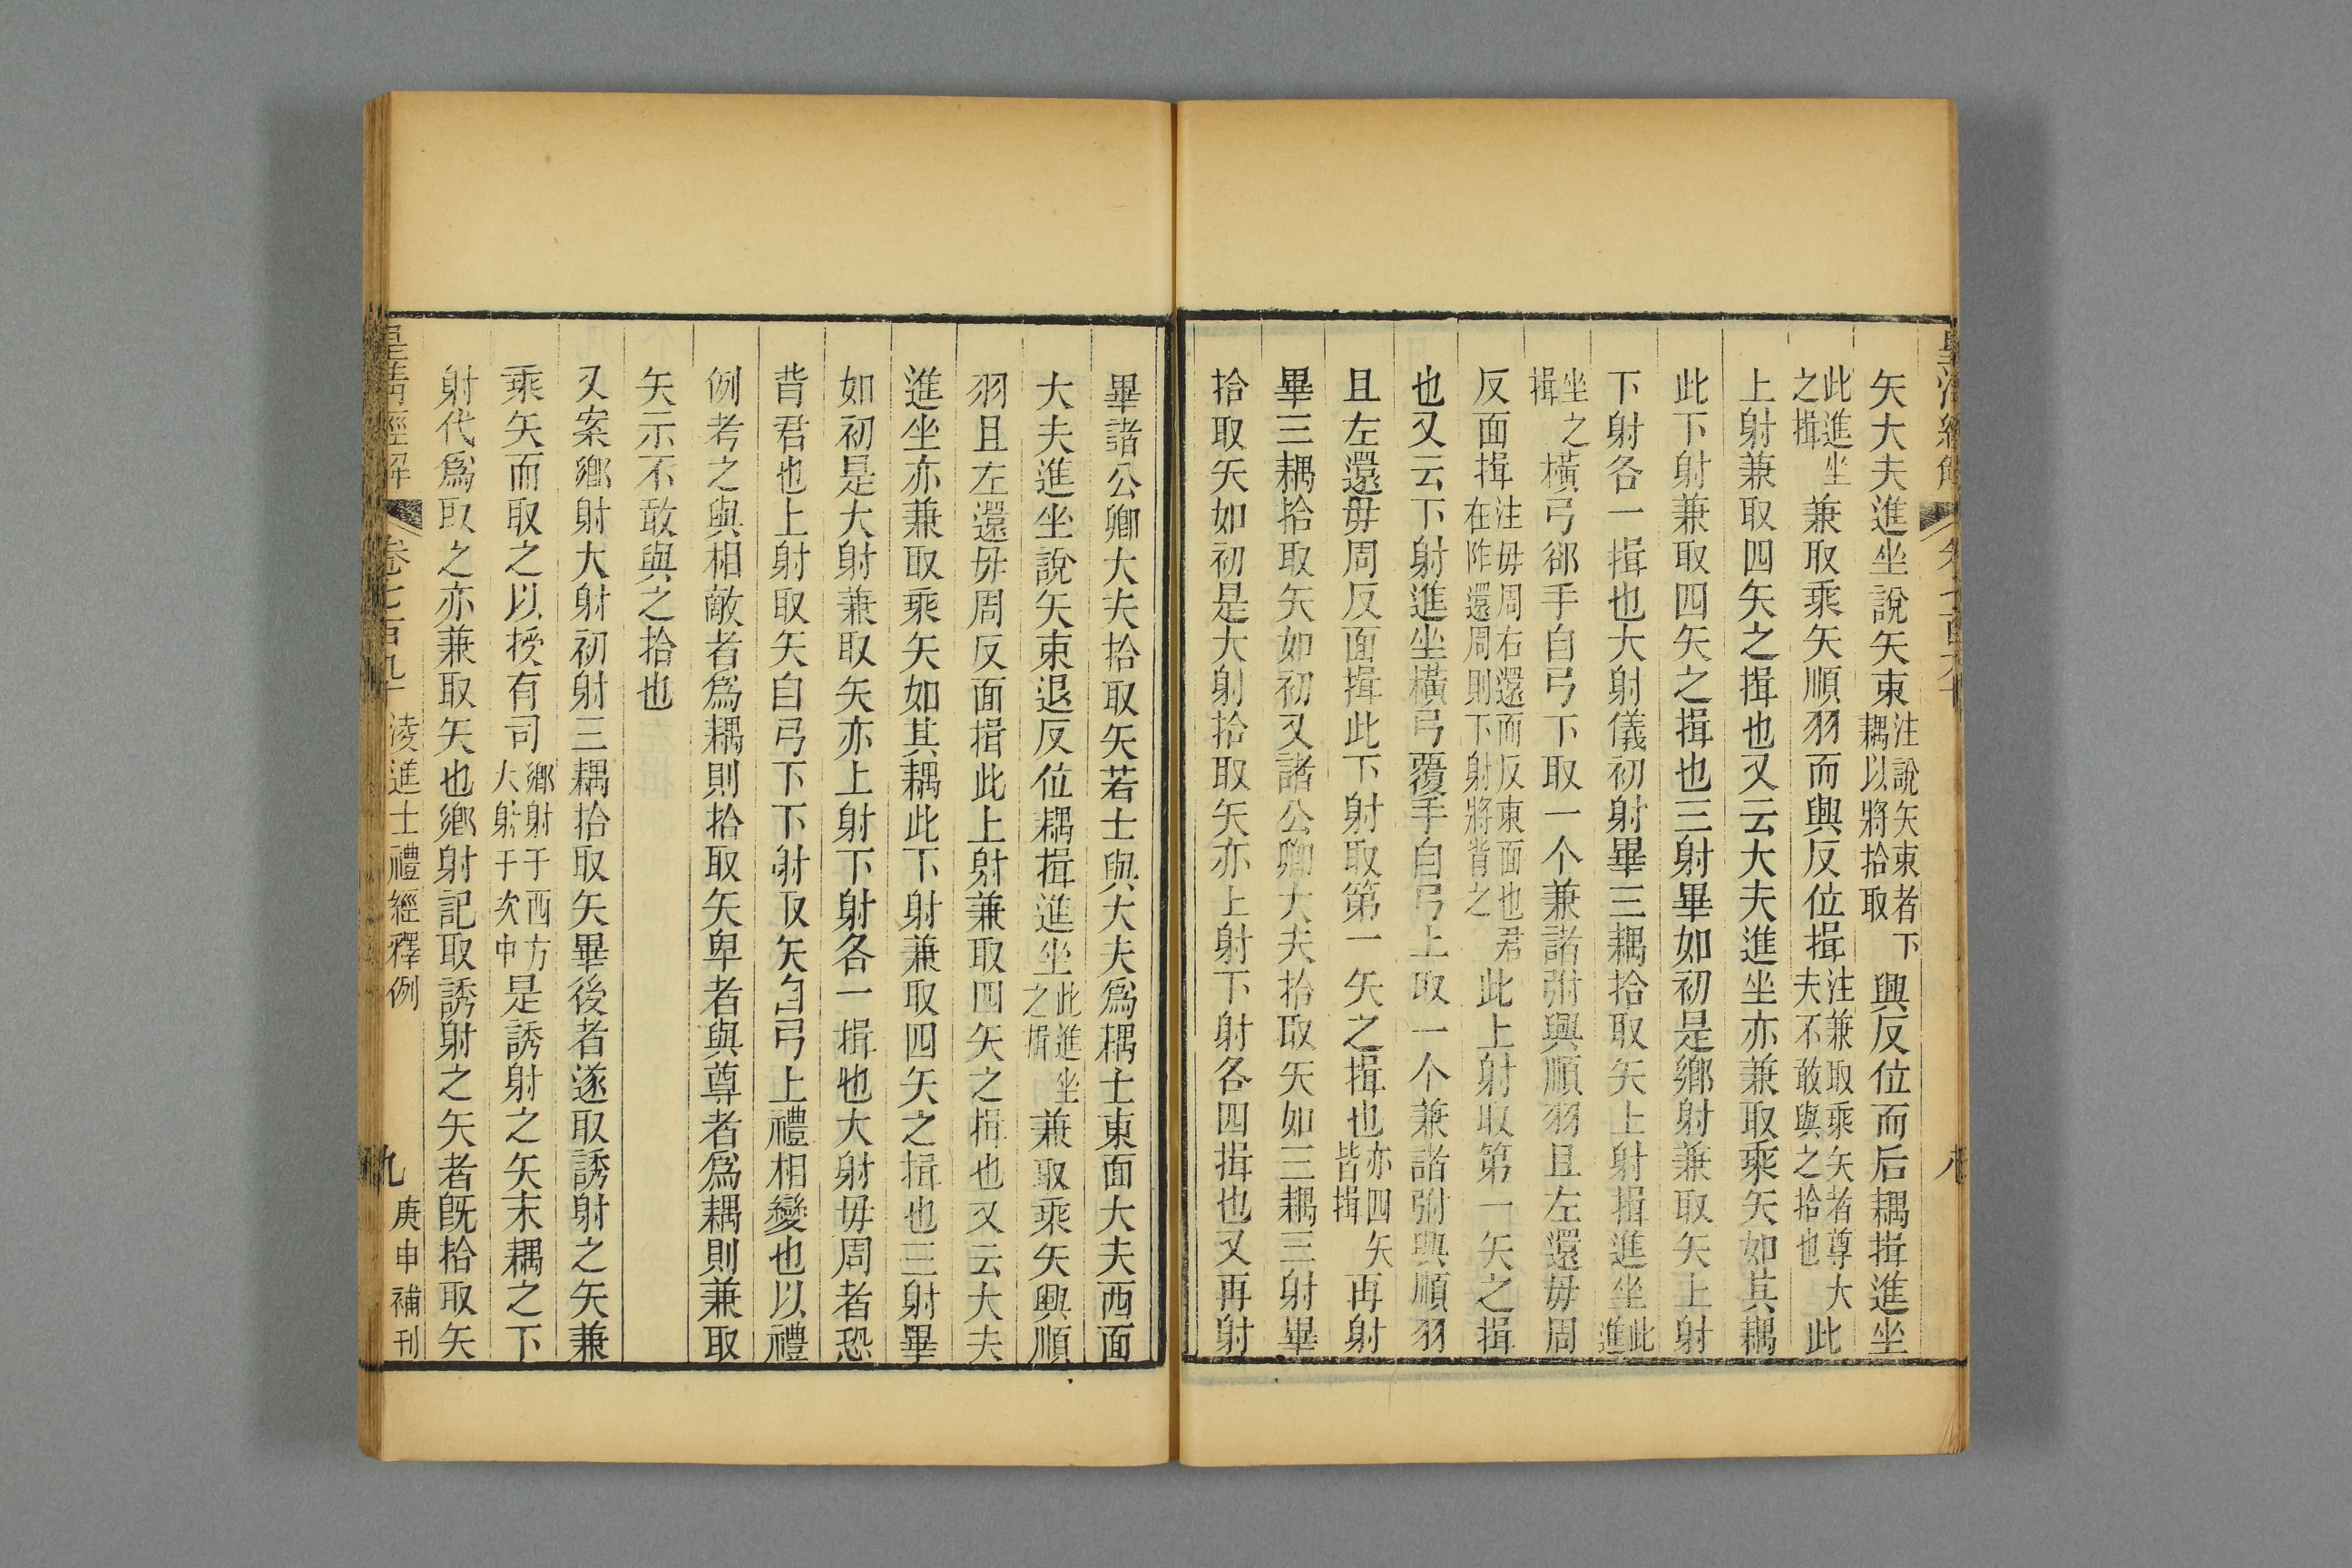 矢大夫進坐說矢束注說矢束者下耦以將拾取興反位而后耦揖進坐
此進坐之揖兼取乘矢順羽而興反位揖注兼取乘矢者尊大夫不敢與之拾也此
上射兼取四矢之揖也又云大夫進坐亦兼取乘矢如其耦
此下射兼取四矢之揖也三射畢如初是鄉射兼取矢上射
下射各一揖也大射儀初射畢三耦拾取矢上射揖進坐此進
坐之揖橫弓郤手自弓下取一个兼諸弣興順羽且左還毋周
反面揖注毋周右還而反東面也君在阼還周則下射將背之此上射取第一矢之揖
也又云下射進坐橫弓覆手自弓上取一个兼諸弣興順羽
且左還毋周反面揖此下射取第一矢之揖也亦四矢皆揖再射
畢三耦拾取矢如初又諸公卿大夫拾取矢如三耦三射畢
拾取矢如初是大射拾取矢亦上射下射各四揖也又再射
畢諸公卿大夫拾取矢若士與大夫爲耦士東面大夫西面
大夫進坐說矢束退反位耦揖進坐此進坐之揖兼取乘矢興順
羽且左還毋周反面揖此上射兼取四矢之揖也又云大夫
進坐亦兼取乘矢如其耦此下射兼取四矢之揖也三射畢
如初是大射兼取矢亦上射下射各一揖也大射毋周者恐
背君也上射取矢自弓下下射取矢自弓上禮相變也以禮
例考之與相敵者爲耦則拾取矢卑者與尊者爲耦則兼取
矢示不敢與之拾也
又案鄉射大射初射三耦拾取矢畢後者遂取誘射之矢兼
乘矢而取之以授有司鄉射于西方大射于次中是誘射之矢末耦之下
射代爲取之亦兼取矢也鄉射記取誘射之矢者旣拾取矢
皇清經解 卷七百九十 淩進士禮經釋例 九 庚申補刊